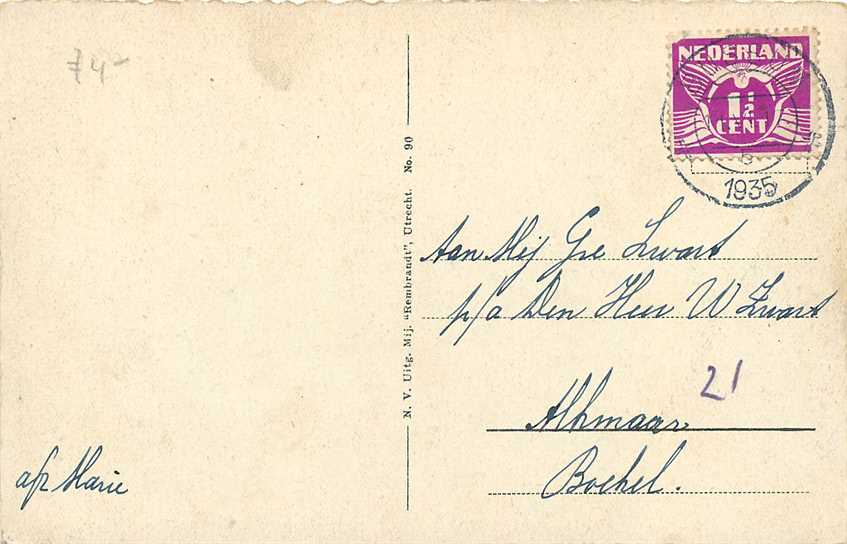 74-
NEDERLAND
1½
CENT
1935
N. V. Uitg. Mij. "Rembrandt", Utrecht. No. 90
Aan Mej Gre Zwart
p/a Den Heer W Zwart
21
Alkmaar
Boekel.
afz Marie